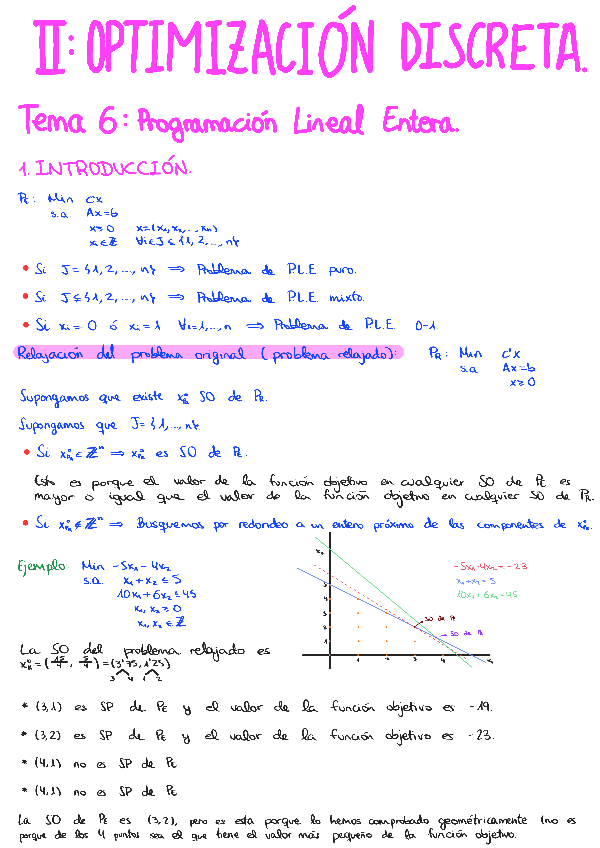 II: OPTIMIZACIÓN DISCRETA.
Tema 6: Programación Lineal Entera.
1. INTRODUCCIÓN.
PE: Min cx
s.a. Ax=b
x≥0 x=(x₁,x₂,...,xₙ)
xᵢ∈ℤ ∀i∈J⊆{1,2,...,n}
• Si J={1,2,...,n} ⇒ Problema de P.L.E. puro.
• Si J⊊{1,2,...,n} ⇒ Problema de P.L.E. mixto.
• Si xᵢ=0 ó xᵢ=1 ∀i=1,...,n ⇒ Problema de P.L.E. 0-1.
Relajación del problema original (problema relajado): PR: Min c'x
s.a Ax=b
x≥0
Supongamos que existe x*R SO de PR.
Supongamos que J={1,...,n}
• Si x*PR∈ℤⁿ ⇒ x*PR es SO de PE.
Esto es porque el valor de la función objetivo en cualquier SO de PE es
mayor o igual que el valor de la función objetivo en cualquier SO de PR.
• Si x*PR∉ℤⁿ ⇒ Busquemos por redondeo a un entero próximo de las componentes de x*PR.
Ejemplo: Min -5x₁-4x₂
s.a. x₁+x₂≤5
10x₁+6x₂≤45
x₁,x₂≥0
x₁,x₂∈ℤ
x₂
5
4
3
2
1
1
3
4
x₁
SO de PE
SO de PR
-5x₁-4x₂=-23
x₁+x₂=5
10x₁+6x₂=45
La SO del problema relajado es
x*R=(15/4, 5/4)=(3'75,1'25)
3 4 1 2
* (3,1) es SP de PE y el valor de la función objetivo es -19.
* (3,2) es SP de PE y el valor de la función objetivo es -23.
* (4,1) no es SP de PE
* (4,1) no es SP de PE
La SO de PE es (3,2), pero es esta porque lo hemos comprobado geométricamente (no es
porque de los 4 puntos sea el que tiene el valor más pequeño de la función objetivo.